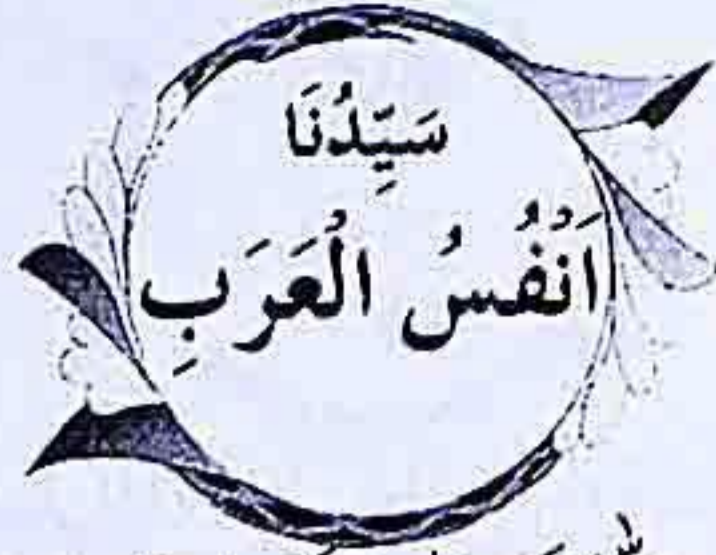 سَيِّدُنَا
اَنْفُسُ الْعَرَبِ